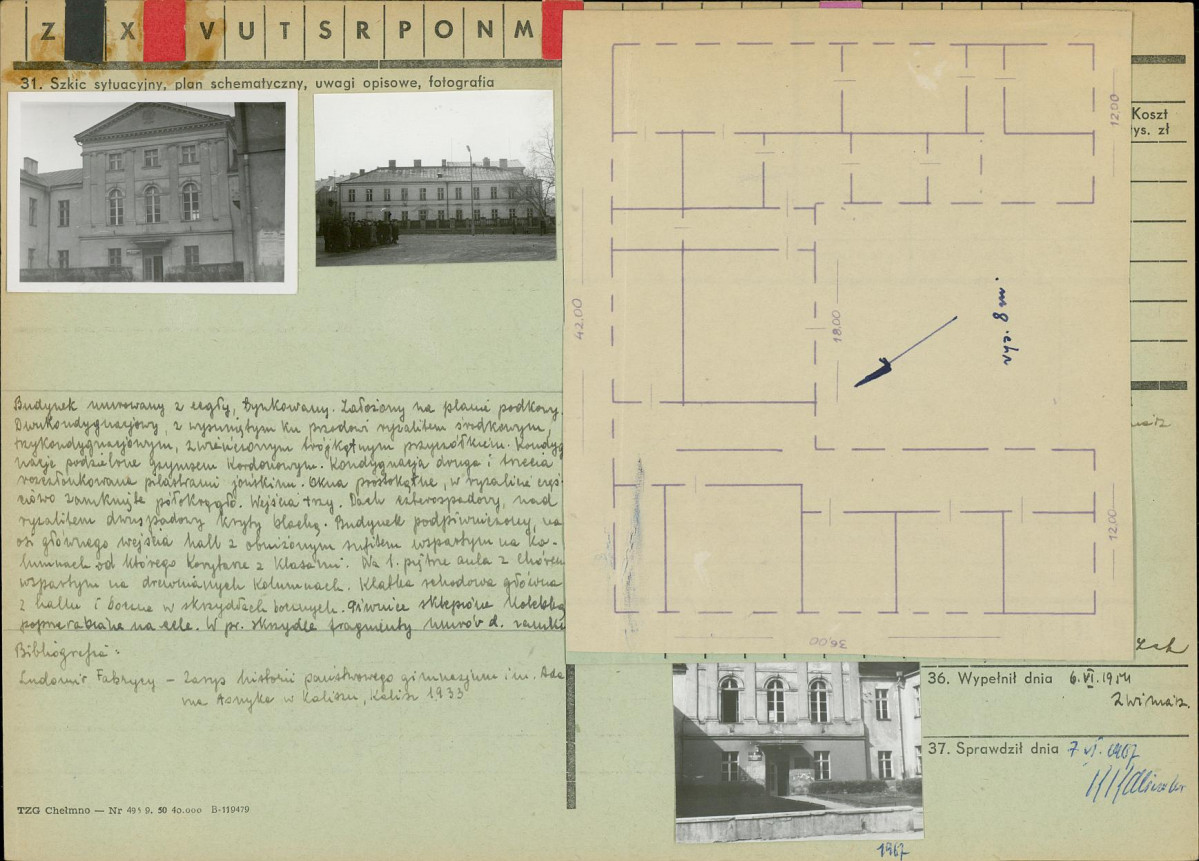 Z X V U T S R P O N M
31. Szkic sytuacyjny, plan schematyczny, uwagi opisowe, fotografia
Koszt
tys. zł
12.00
42.00
18.00
wys. 8 m.
12.00
36.00
Budynek murowany z cegły, tynkowany. Założony na planie podkowy.
Dwukondygnacyjowy, z wysuniętym ku przodowi ryzalitem środkowym,
trzykondygnacyjowym, zwieńczonym trójkątnym przyczółkiem. Kondyg
nacje podzielone gzymsem kordonowym. Kondygnacja druga i trzecia
rozczłonkowane pilastrami jońskimi. Okna prostokątne, w ryzalicie częś
ciowo zamknięte półokrągło. Wejścia trzy. Dach czterospadowy, nad
ryzalitem dwuspadowy kryty blachą. Budynek podpiwniczony, na
osi głównego wejścia hall z obniżonym sufitem wspartym na ko-
lumnach od którego korytarze z klasami. Na 1. piętrze aula z chórem
wspartym na drewnianych kolumnach. Klatka schodowa główna
z hallu i boczne w skrzydłach bocznych. Piwnice sklepione kolebką
poprzerabiane na cele. W pr. skrzydle fragmenty murów d. zamku
Bibliografia:
Ludomir Fabrycy – Zarys historii państwowego gimnazjum im. Ada
ma Asnyka w Kaliszu, Kalisz 1933
36. Wypełnił dnia 6.VI.19
37. Sprawdził dnia 7 VI. 1967
TZG Chełmno — Nr 495 9. 50 40.000 B-119479
1967